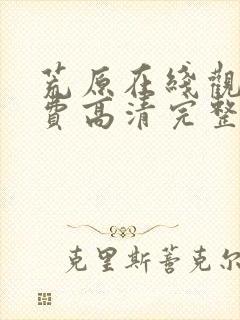 荒原在綫觀
費高清完整
克里斯蒼克尔